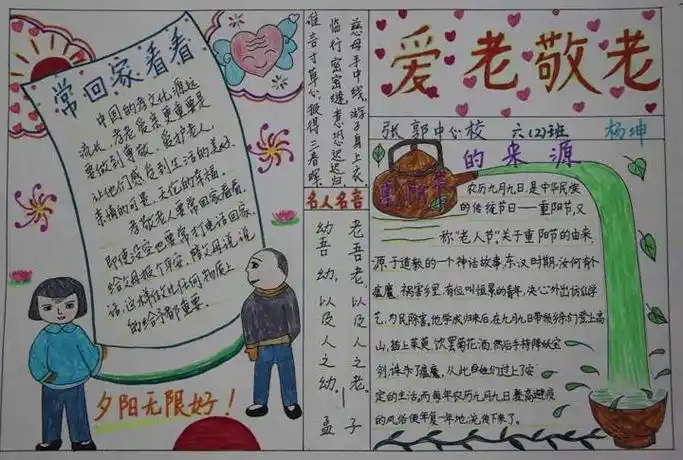 常回家看看
中国的孝文化源远
流长，孝老爱亲更重要是
要做到尊敬、爱护老人，
让他们感受到生活的美好、
亲情的可贵、天伦的幸福，
孝敬老人要常回家看看，
即使没空也要常打电话回家，
给父母报个平安，陪父母说说
话，这样做比任何物质上
的给予都重要。
夕阳无限好！
慈母手中线，游子身上衣
临行密密缝，意恐迟迟归
谁言寸草心，报得三春晖
名人名言
老吾老以及人之老，
幼吾幼以及人之幼。
孟子
爱老敬老
张郭中心校 六(2)班 杨坤
重阳节的来源
农历九月九日，是中华民族
的传统节日——重阳节，又
称“老人节”。关于重阳节的由来，
源于道教的一个神话故事：东汉时期，汝河有个
瘟魔，祸害乡里，有位叫恒景的青年，决心外出访仙学
艺，为民除害。他学成归来后，在九月九日带领乡亲们登上高
山，插上茱萸，饮罢菊花酒，然后手持降妖宝
剑，诛杀了瘟魔，从此百姓们过上了安
定的生活，而每年农历九月九日登高避疫
的风俗便年复一年地流传下来了。